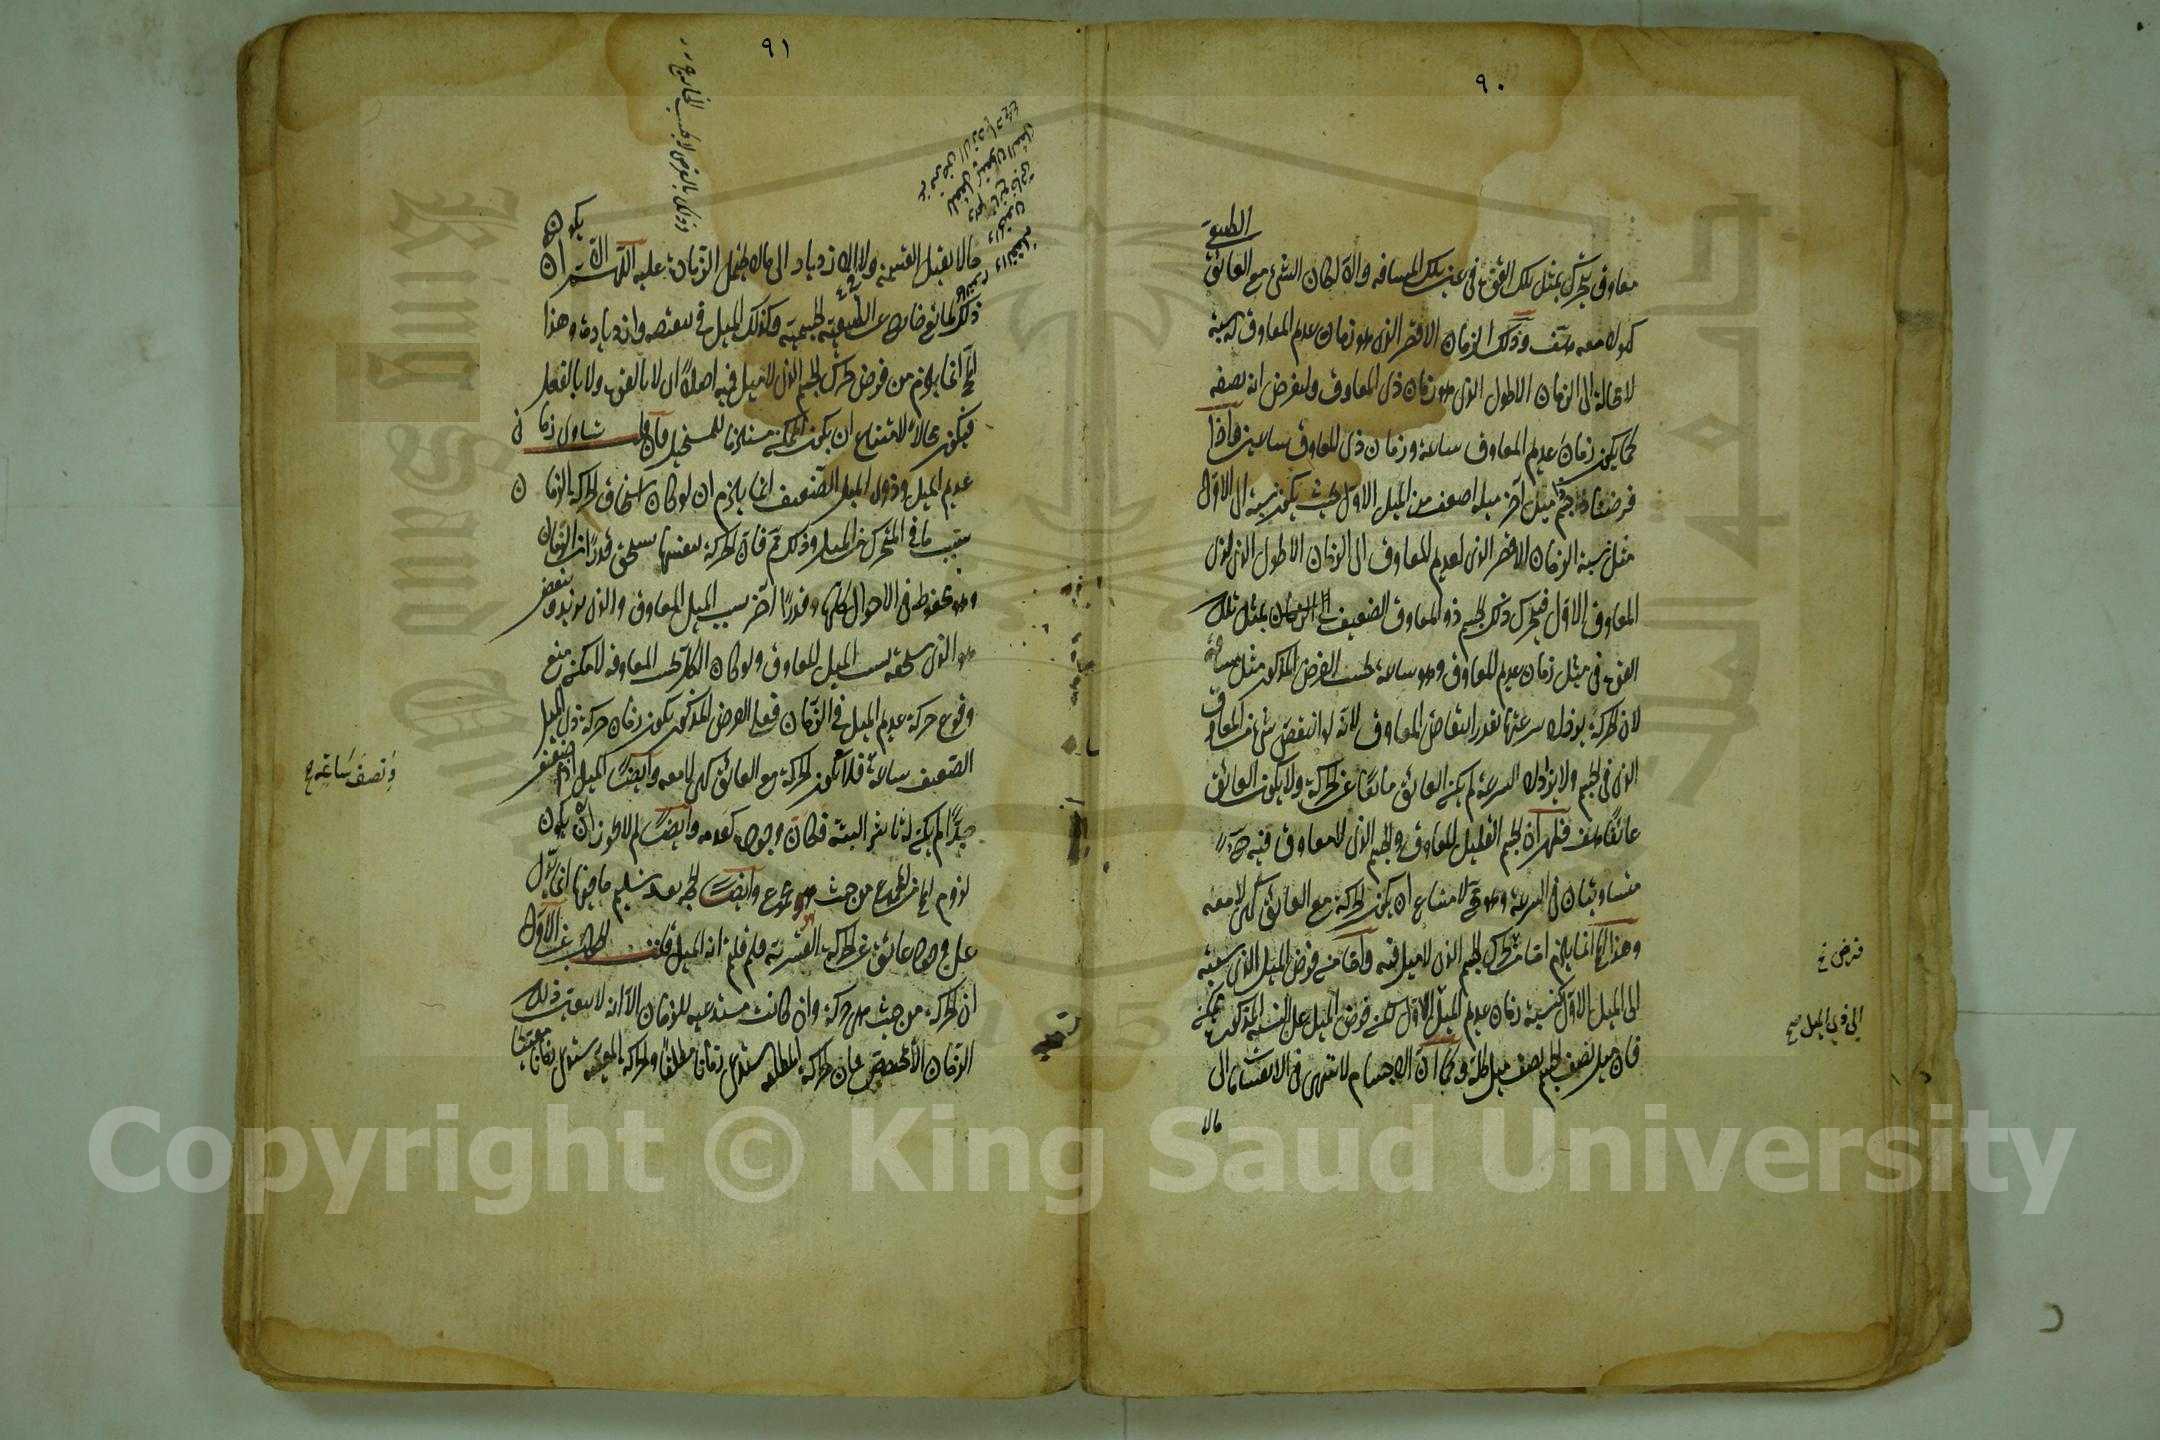 ٩٠
الطبيعى
معاوق يتحرك بمثل تلك القوة فى عين تلك المسافه والا لكان الشئ مع العائق
كهو لا معه هف وذلك الزمان الاقصر الذى هو زمان عديم المعاوق له نسبة
لا محالة الى الزمان الاطول الذى هو زمان ذى المعاوق وليفرض انه نصفه
كما يكون زمان عديم المعاوق ساعة وزمان ذى المعاوق ساعتين فاذا
فرضنا جسم آخر ميله اضعف من الميل الاول بحيث يكون نسبته الى الاول
مثل نسبة الزمان الاقصر الذى لعديم المعاوق الى الزمان الاطول الذى لذى
المعاوق الاول فيتحرك ذلك الجسم ذو المعاوق الضعيف بمثل تلك
القوة فى مثل زمان عديم المعاوق وهو ساعة بحسب الفرض المذكور مثل مسافته
لان الحركة يزداد سرعتها بقدر انتقاص المعاوق لانه لو انتقص شئ من المعاوق
الذى فى الجسم ولا يزداد السرعة لم يكن العائق مانعا عن الحركة ولا يكون العائق
عائقا هف فظهر ان الجسم القليل المعاوق والجسم الذى لا معاوق فيه
متساويان فى السرعة وهو مح لامتناع ان يكون الحركة مع العائق كهى لا معه
وهذا المح انما يلزم اما من تحرك الجسم الذى لا ميل فيه واما من فرض الميل الذى نسبته
الى الميل الاول كنسبة زمان عديم الميل الاول لكن فرض الميل على النسبة المذكورة ممكن
فان ميل نصف الجسم نصف ميل كله وكما ان الاجسام لا تنتهى فى الانقسامات الى
مالا
فرض خ
الى ذى الميل صح
٩١
وذلك بالفرض لا بحسب الخارج
يكون
مالا يقبل القسمة ولا الازدياد الى مالا يحتمل الزيادة عليه اللهم الا ان
ذلك لمانع خارج عن الطبيعة الجسمية وكذلك الميل فى تنقصه وازدياده وهذا
المح انما يلزم من فرض تحرك الجسم الذى لا ميل فيه اصلا اى لا بالقوة ولا بالفعل
فيكون محالا لامتناع ان يكون الممكن مستلزما للمستحيل فان قلت تساوى زمان
عديم الميل وذى الميل الضعيف انما يلزم ان لو كان استحقاق الحركة الزمان
بسبب ما فى المتحرك من الميل وذلك مم فان الحركة بنفسها تستحق قدرا من الزمان
وهو محفوظة فى الاحوال كلها وقدرا آخر بسبب الميل المعاوق والذى يزيد وينقص
هو الذى يستحقه بسبب الميل المعاوق ولو كان الكل بحسب المعاوقة لامكن منع
وقوع حركة عديم الميل فى الزمان فعلى الفرض المذكور يكون زمان حركة ذى الميل
الضعيف ساعة فلا يكون الحركة مع العائق كهى لا معه وايضا الميل اذا ضعف
جدا لم يكن له تاثير البتة فكان وجوده كعدمه وايضا لم لا يجوز ان يكون
لزوم المح من المجموع من حيث هو مجموع وايضا الحجة بعد تسليم ما فيها انما تدل
على وجود عائق عن الحركة القسرية فلم قلتم انه الميل قلت الجواب عن الاول
ان الحركة من حيث هى حركة وان كانت مستدعية للزمان الا انه لا يتعين ذلك
الزمان الا بمخصص فان الحركة المطلقة تستدعى زمانا مطلقا والحركة المعينة تستدعى زمانا معينا
ونصف ساعة صح